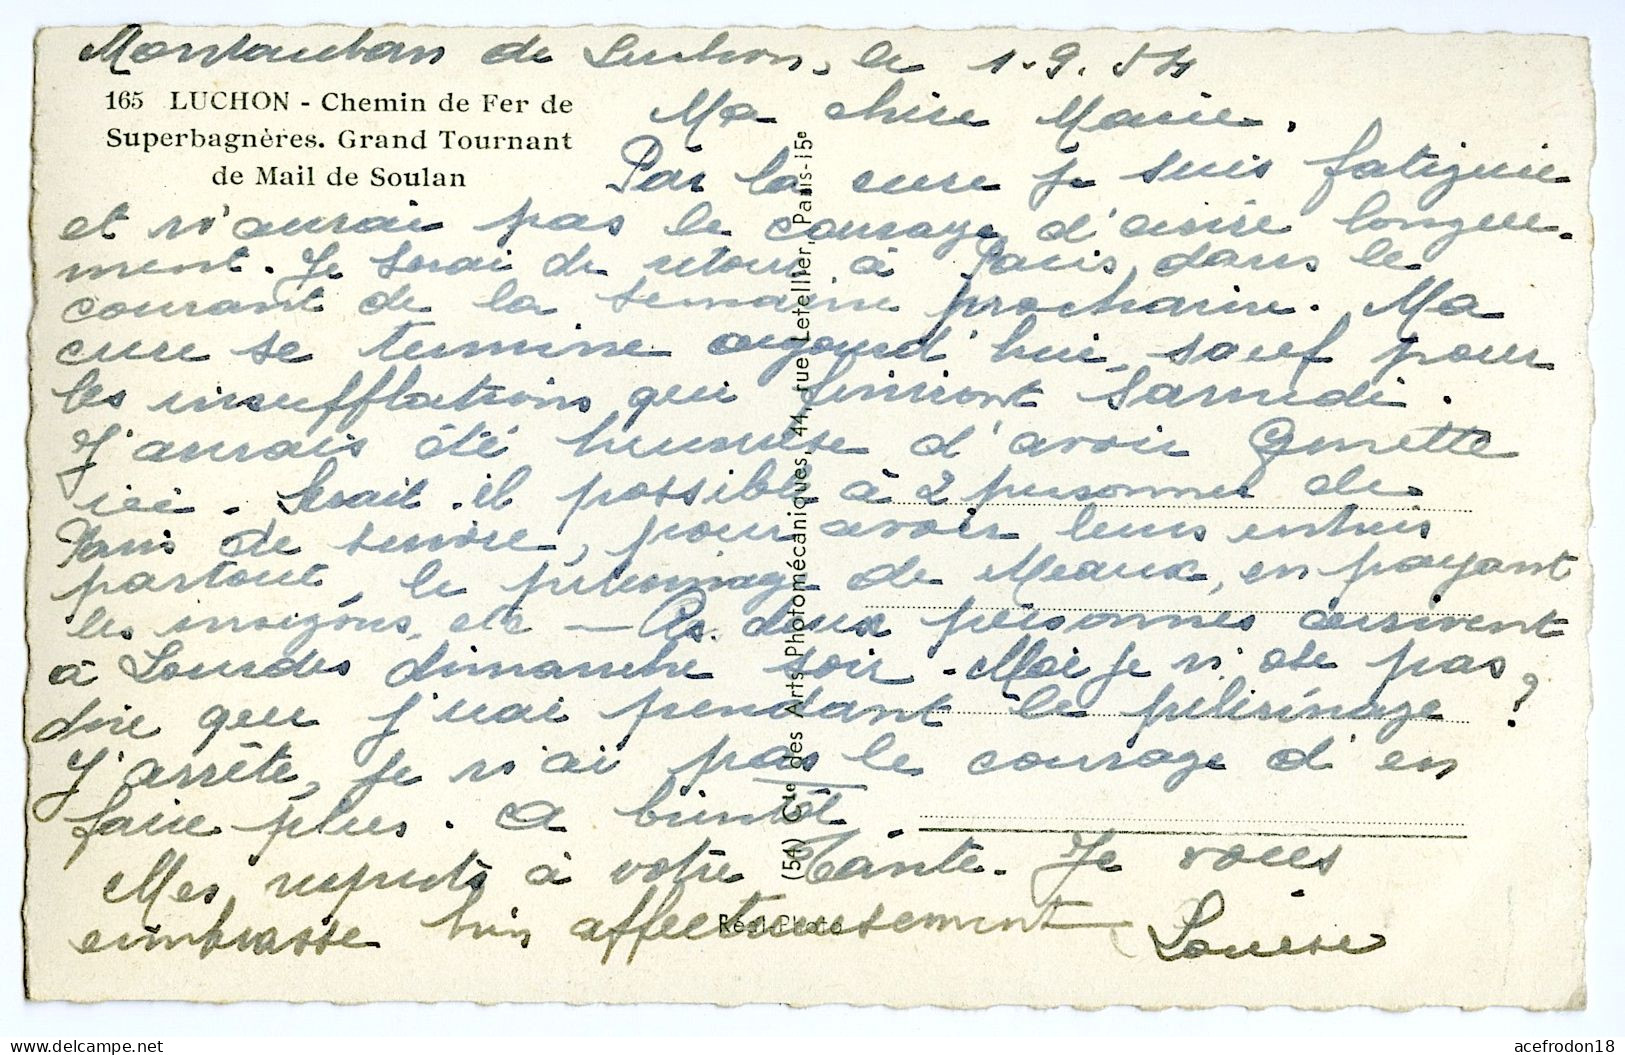 Montauban de Luchon, le 1.9.54
165 LUCHON - Chemin de Fer de
Superbagnères. Grand Tournant
de Mail de Soulan
Ma chère Marie,
Par la cure je suis fatiguée
et n'aurai pas le courage d'écrire longue-
ment. Je serai de retour à Paris, dans le
courant de la semaine prochaine. Ma
cure se termine aujourd'hui, sauf pour
les insufflations qui finiront Samedi.
J'aurais été heureuse d'avoir Ginette
ici. Serait-il possible à 2 personnes de
Paris de suivre, pour avoir leurs entrées
partout, le pèlerinage de Meaux, en payant
les insignes, etc — Ces deux personnes arrivent
à Lourdes dimanche soir. Moi je n'ose pas
dire que j'irai pendant le pèlerinage ?
J'arrête, je n'ai pas le courage d'en
faire plus. A bientôt.
Mes respects à votre Tante. Je vous
embrasse bien affectueusement
Louise
(54) Cie des Arts Photomécaniques, 44, rue Letellier, Paris-15e
Réel Photo
acefrodon18